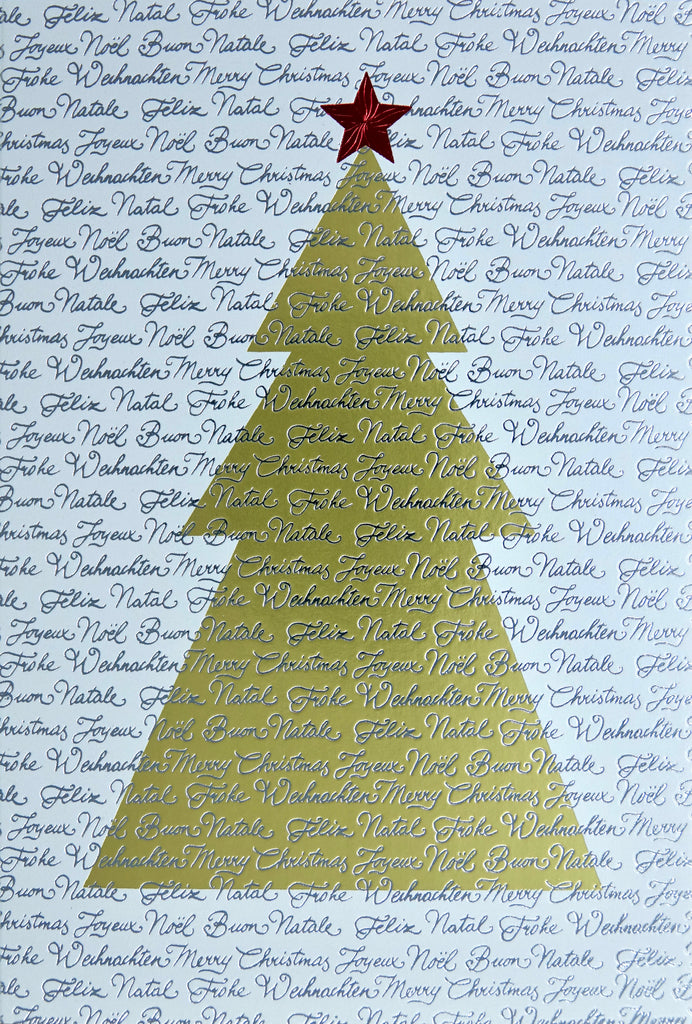 Feliz Natal Frohe Weihnachten Merry Christmas Joyeux Noël
Joyeux Noël Buon Natale Feliz Natal Frohe Weihnachten Merry
Frohe Weihnachten Merry Christmas Joyeux Noël Buon Natale Feliz
Buon Natale Feliz Natal Merry Christmas Joyeux
hristmas Joyeux Noël Buon Natale Feliz Natal Frohe Weihnachten
rohe Weihnachten Merry Christmas Joyeux Noël Buon Natale Feliz
ale Feliz Natal Frohe Weihnachten Merry Christmas Joyeux Noël
Joyeux Noël Buon Natale Feliz Natal Frohe Weihnachten Merry
Frohe Weihnachten Merry Christmas Joyeux Noël Buon Natale Feliz
Buon Natale Feliz Natal Frohe Weihnachten Merry Christmas Joyeux
hristmas Joyeux Noël Buon Natale Feliz Natal Frohe Weihnachten
rohe Weihnachten Merry Christmas Joyeux Noël Buon Natale Feliz
ale Feliz Natal Frohe Weihnachten Merry Christmas Joyeux Noël
Joyeux Noël Buon Natale Feliz Natal Frohe Weihnachten Merry
Frohe Weihnachten Merry Christmas Joyeux Noël Buon Natale Feliz
Buon Natale Feliz Natal Frohe Weihnachten Merry Christmas Joyeux
hristmas Joyeux Noël Buon Natale Feliz Natal Frohe Weihnachten
rohe Weihnachten Merry Christmas Joyeux Noël Buon Natale Feliz
ale Feliz Natal Frohe Weihnachten Merry Christmas Joyeux Noël
Joyeux Noël Buon Natale Feliz Natal Frohe Weihnachten Merry
Frohe Weihnachten Merry Christmas Joyeux Noël Buon Natale Feliz
Buon Natale Feliz Natal Frohe Weihnachten Merry Christmas Joyeux
hristmas Joyeux Noël Buon Natale Feliz Natal Frohe Weihnachten
rohe Weihnachten Merry Christmas Joyeux Noël Buon Natale Feliz
ale Feliz Natal Frohe Weihnachten Merry Christmas Joyeux Noël
Joyeux Noël Buon Natale Feliz Natal Frohe Weihnachten Merry
Frohe Weihnachten Merry Christmas Joyeux Noël Buon Natale Feliz
Buon Natale Feliz Natal Frohe Weihnachten Merry Christmas Joyeux
hristmas Joyeux Noël Buon Natale Feliz Natal Frohe Weihnachten
rohe Weihnachten Merry Christmas Joyeux Noël Buon Natale Feliz
ale Feliz Natal Frohe Weihnachten Merry Christmas Joyeux Noël
Joyeux Noël Buon Natale Feliz Natal Frohe Weihnachten Merry